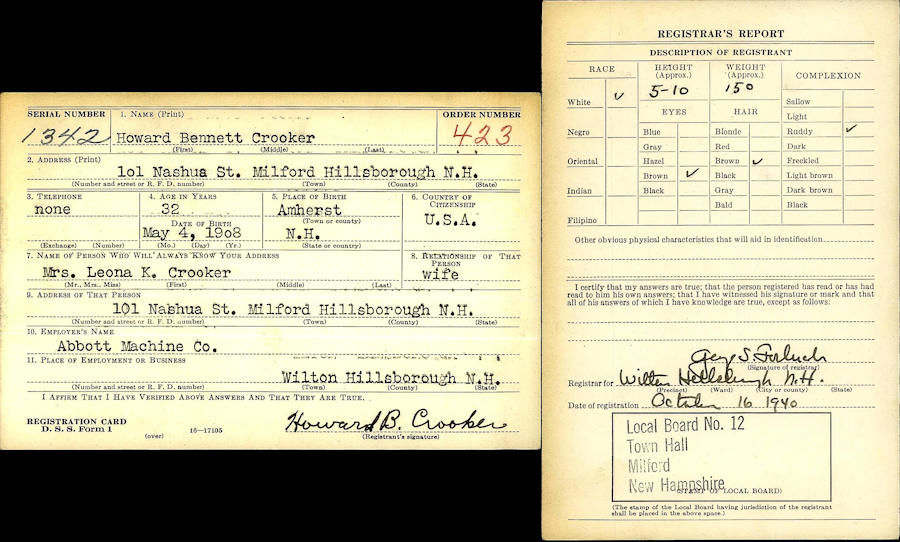 SERIAL NUMBER 1. NAME (Print) ORDER NUMBER
1342 Howard Bennett Crooker 423
(First) (Middle) (Last)
2. ADDRESS (Print)
101 Nashua St. Milford Hillsborough N.H.
(Number and street or R. F. D. number) (Town) (County) (State)
3. TELEPHONE 4. AGE IN YEARS 5. PLACE OF BIRTH 6. COUNTRY OF CITIZENSHIP
none 32 Amherst U.S.A.
DATE OF BIRTH (Town or county)
May 4, 1908 N.H.
(Exchange) (Number) (Mo.) (Day) (Yr.) (State or country)
7. NAME OF PERSON WHO WILL ALWAYS KNOW YOUR ADDRESS 8. RELATIONSHIP OF THAT PERSON
Mrs. Leona K. Crooker wife
(Mr., Mrs., Miss) (First) (Middle) (Last)
9. ADDRESS OF THAT PERSON
101 Nashua St. Milford Hillsborough N.H.
(Number and street or R. F. D. number) (Town) (County) (State)
10. EMPLOYER'S NAME
Abbott Machine Co.
11. PLACE OF EMPLOYMENT OR BUSINESS
Wilton Hillsborough N.H.
(Number and street or R. F. D. number) (Town) (County) (State)
I AFFIRM THAT I HAVE VERIFIED ABOVE ANSWERS AND THAT THEY ARE TRUE.
REGISTRATION CARD
D. S. S. Form 1 (over) 16—17105 Howard B. Crooker
(Registrant's signature)
REGISTRAR'S REPORT
DESCRIPTION OF REGISTRANT
RACE HEIGHT (Approx.) WEIGHT (Approx.) COMPLEXION
White ✓ 5-10 150 Sallow
EYES HAIR Light
Negro Blue Blonde Ruddy ✓
Gray Red Dark
Oriental Hazel Brown ✓ Freckled
Brown ✓ Black Light brown
Indian Black Gray Dark brown
Bald Black
Filipino
Other obvious physical characteristics that will aid in identification
I certify that my answers are true; that the person registered has read or has had
read to him his own answers; that I have witnessed his signature or mark and that
all of his answers of which I have knowledge are true, except as follows:
S.
(Signature of registrar)
Registrar for Wilton Hillsborough N.H.
(Precinct) (Ward) (City or county) (State)
Date of registration October 16 1940
Local Board No. 12
Town Hall
Milford
New Hampshire
(STAMP OF LOCAL BOARD)
(The stamp of the Local Board having jurisdiction of the registrant
shall be placed in the above space.)